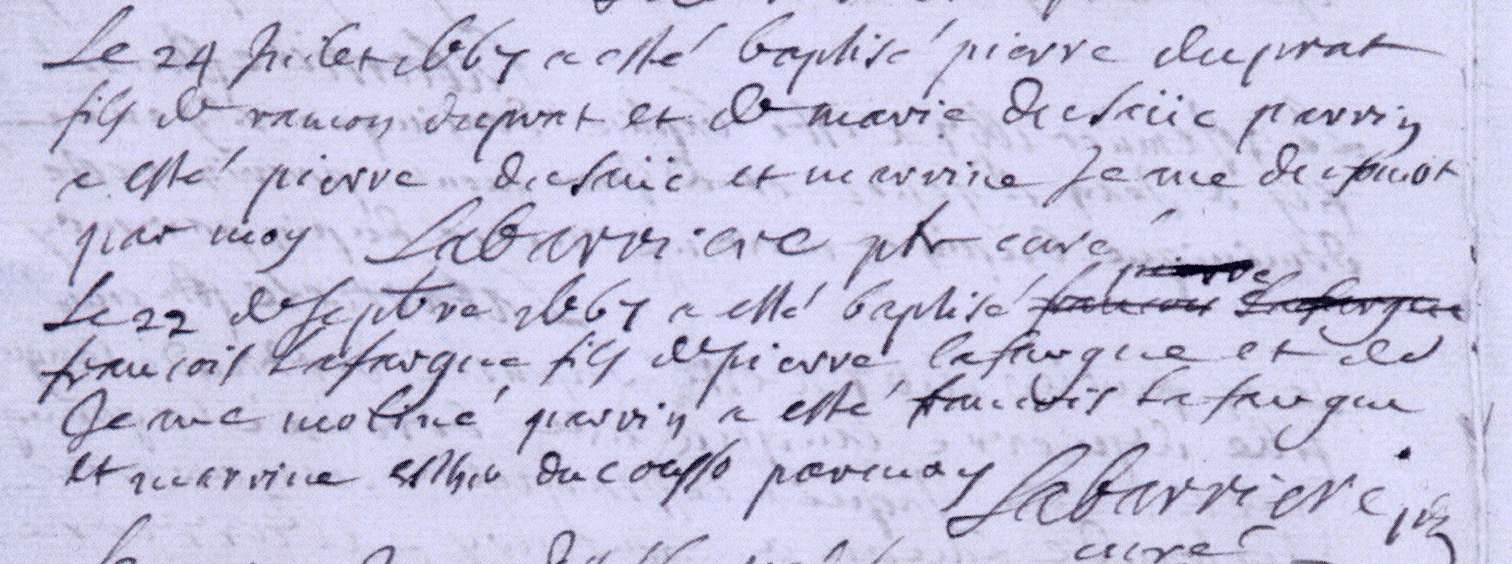 Le 24 Juilet 1667 a esté baptisé pierre duprat
fils de ramon duprat et de marie dusaiic parrin
a esté pierre dusaiic et marrine Jeane duprat
par moy Labarriere ptr curé
pierre
Le 22 de septbre 1667 a esté baptisé francois Lafargue
francois Lafargue fils de pierre lafargue et de
Jeane moliné parrin a esté francois Lafargue
et marrine esther ducousso par moy Labarriere
curé